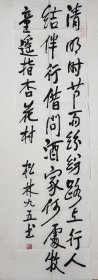 清明时节雨纷纷路上行人
结伴行借问酒家何处牧
童遥指杏花村 松林九五书